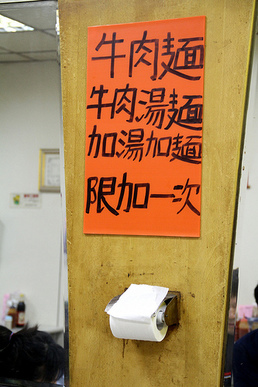 牛肉麵
牛肉湯麵
加湯加麵
限加一次